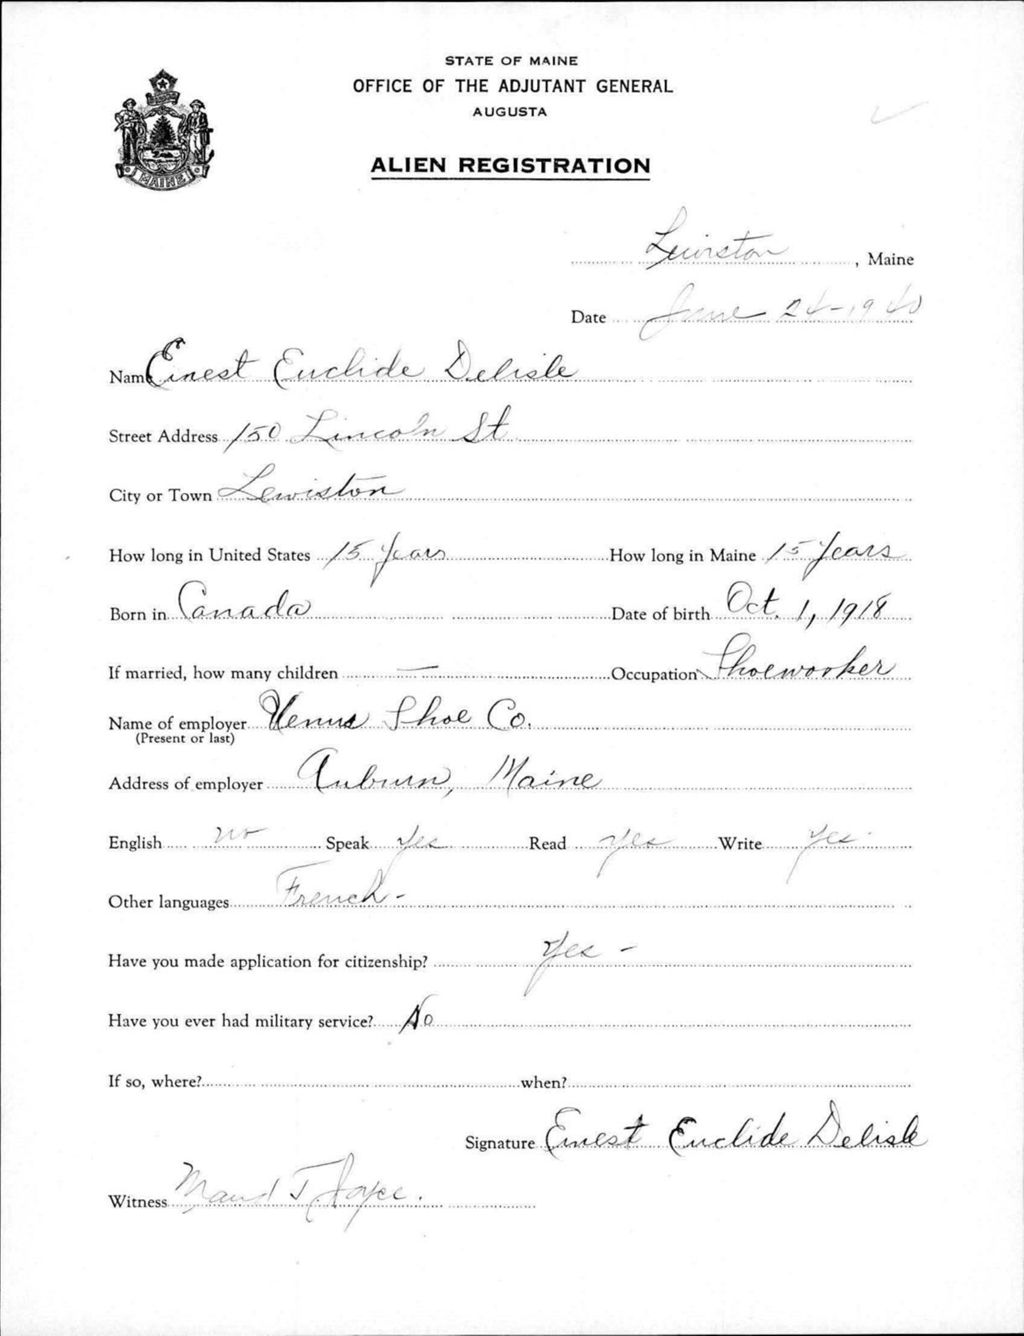 STATE OF MAINE
OFFICE OF THE ADJUTANT GENERAL
AUGUSTA
MAINE
ALIEN REGISTRATION
Lewiston, Maine
Date June 24-1940
Name Ernest Euclide Delisle
Street Address 150 Lincoln St
City or Town Lewiston
How long in United States 15 Years How long in Maine 15 Years
Born in Canada Date of birth Oct. 1, 1918
If married, how many children — Occupation Shoeworker
Name of employer Venus Shoe Co.
(Present or last)
Address of employer Auburn, Maine
English no Speak Yes Read yes Write Yes
Other languages French -
Have you made application for citizenship? Yes -
Have you ever had military service? No
If so, where? when?
Signature Ernest Euclide Delisle
Witness Maud T Joyce.